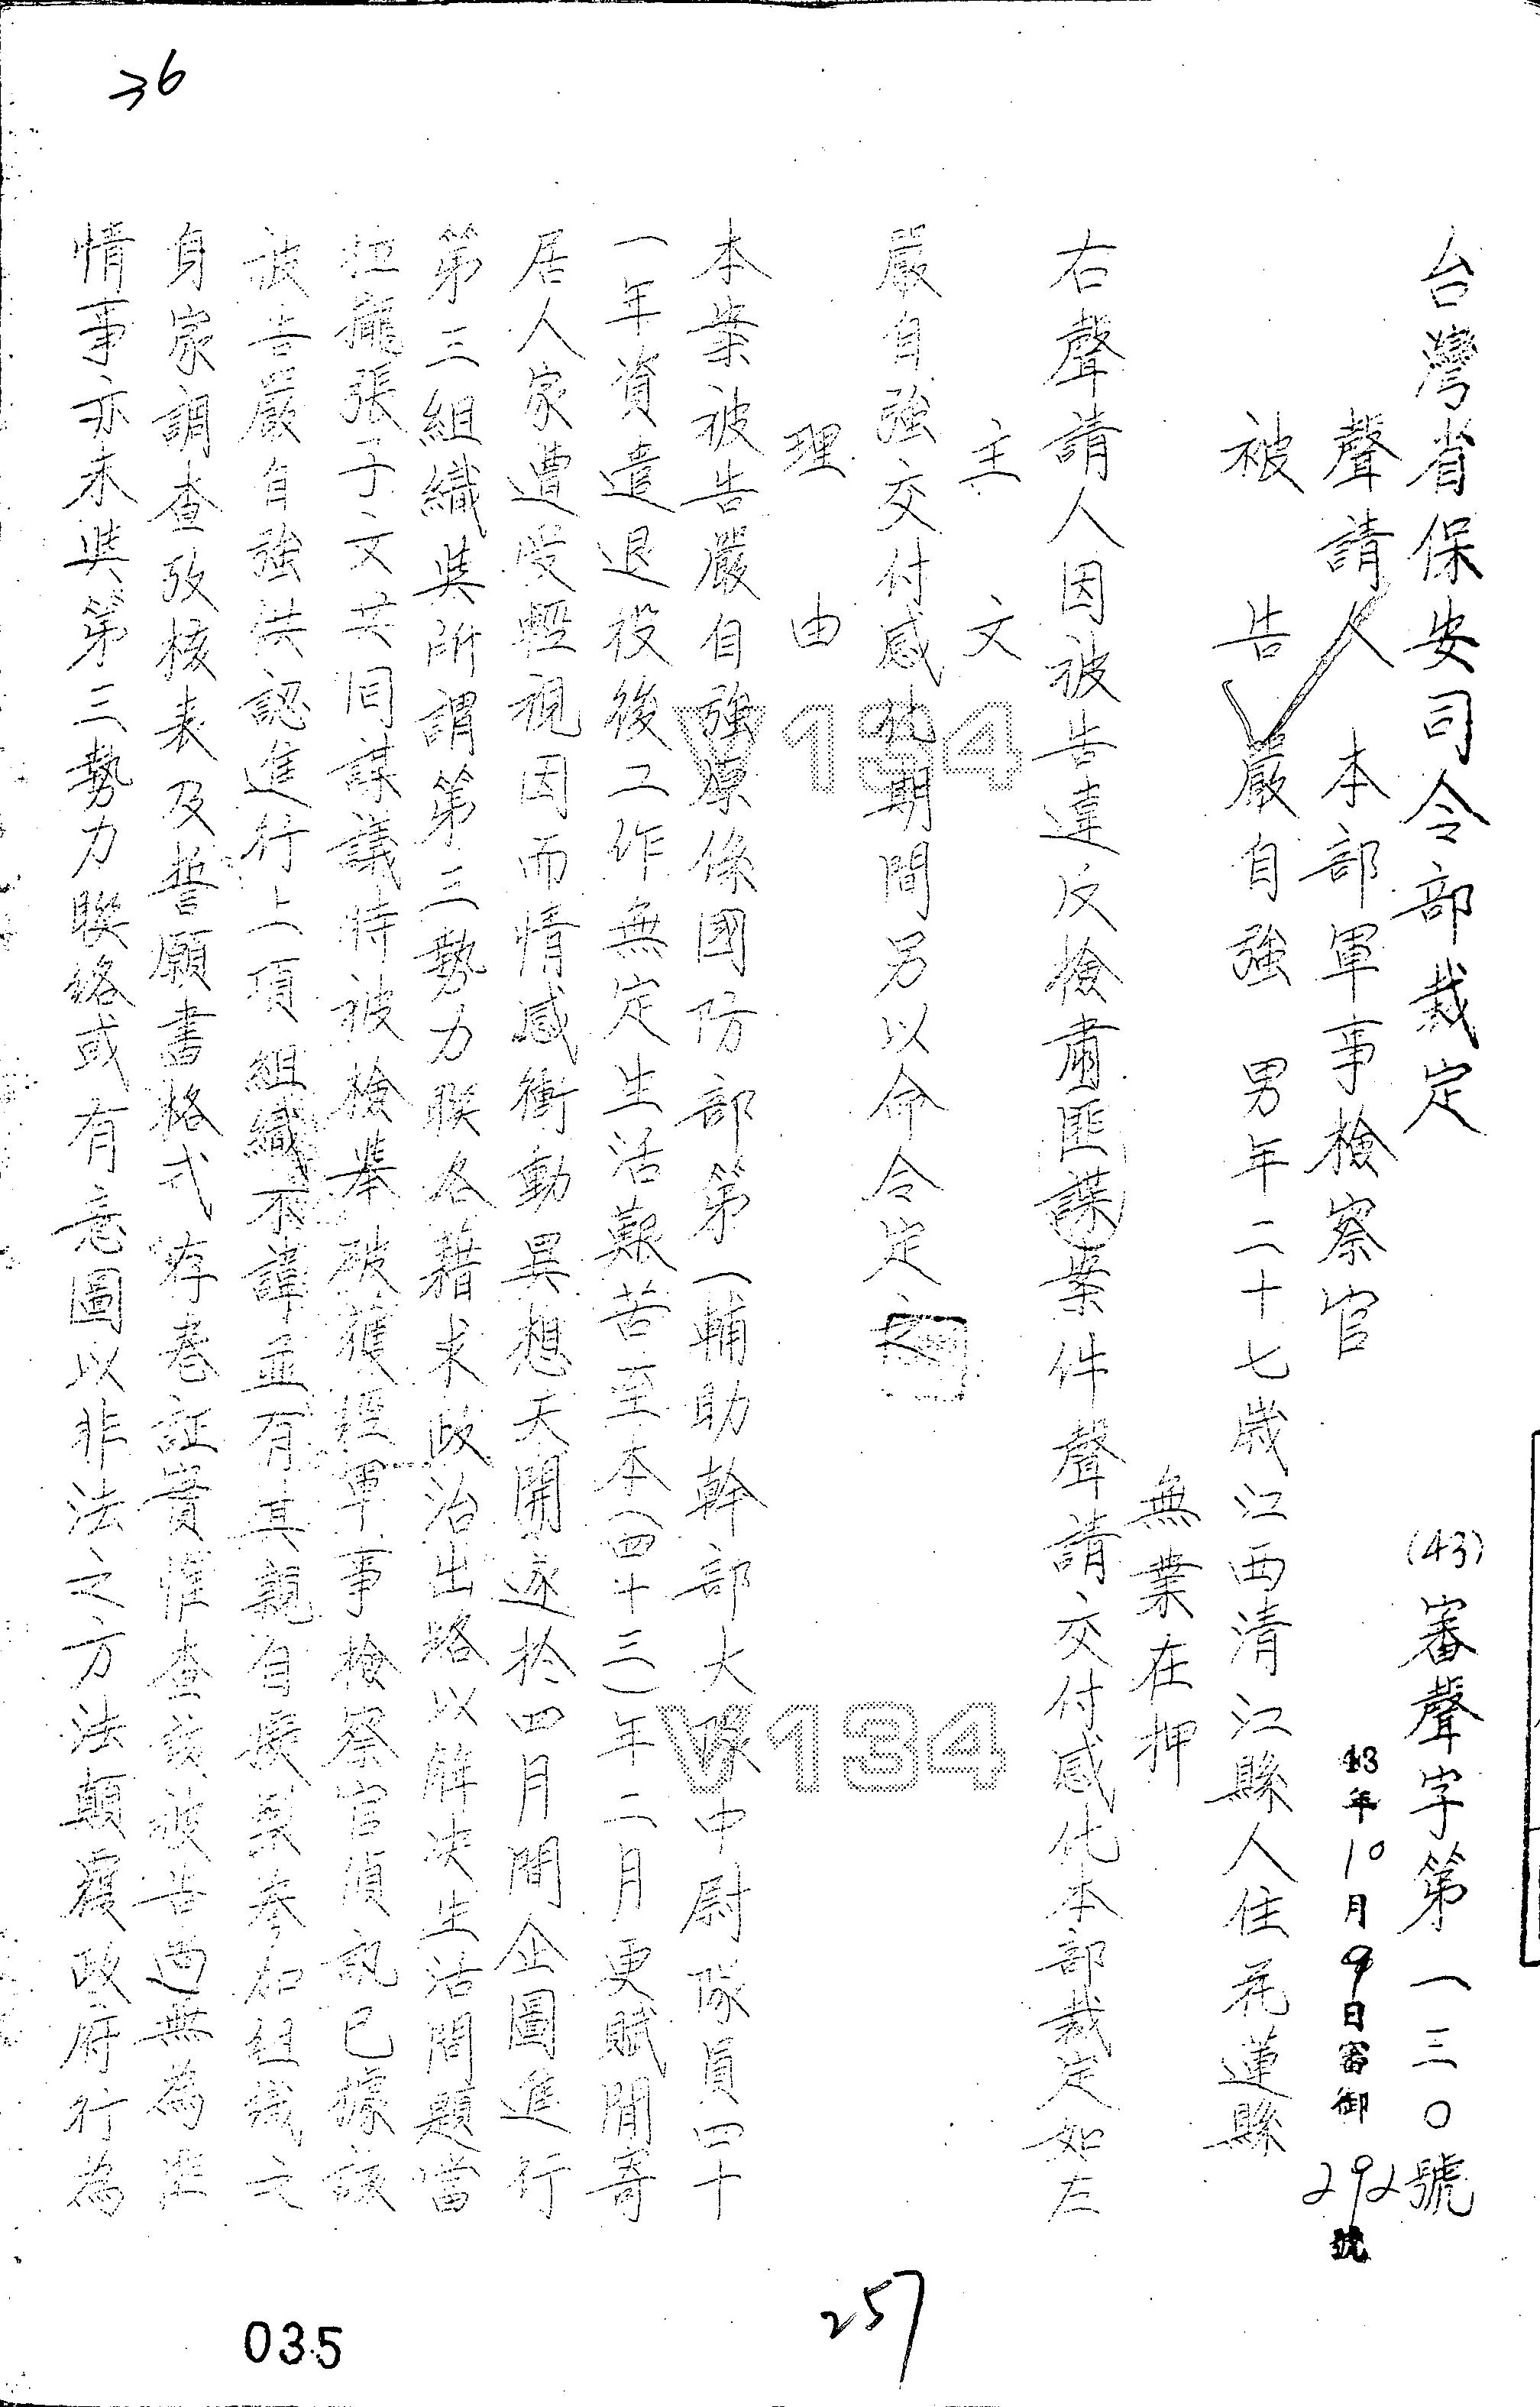 36
台灣省保安司令部裁定
(43)審聲字第一三〇號
43年10月9日審御292號
聲請人 本部軍事檢察官
被告 嚴自強 男年二十七歲江西清江縣人住花蓮縣
無業在押
右聲請人因被告違反檢肅匪諜案件聲請交付感化本部裁定如左
主文
嚴自強交付感化期間另以命令定之
理由
本案被告嚴自強原係國防部第一輔助幹部大隊中尉隊員四十
一年資遣退役後工作無定生活艱苦至本(四十三)年二月更賦閒寄
居人家遭受輕視因而情感衝動異想天開遂於四月間企圖進行
第三組織與所謂第三勢力聯絡藉求政治出路以解決生活問題當
拉攏張子文共同謀議時被檢舉破獲經軍事檢察官偵訊已據該
被告嚴自強供認進行上項組織不諱並有其親自撰製參加組織之
身家調查攷核表及誓願書格式存卷証實惟查該被告尚無為匪
情事亦未與第三勢力聯絡或有意圖以非法之方法顛覆政府行為
V134
V134
257
035